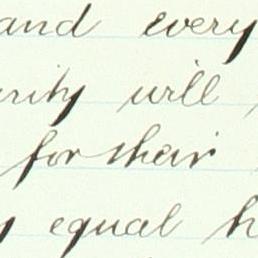 and every
will
for their
equal